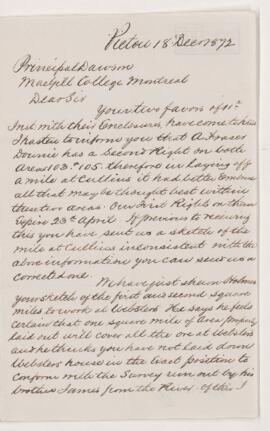 Pictou 18 Decr 1872
Principal Dawson
McGill College Montreal
Dear Sir
Your two favors of 11th
Inst with their Enclosures, have come to hand
I hasten to inform you that A Fraser
Downie has a Second Right on both
Areas 103 & 105. therefore in laying off
a mile at Cullins it had better Embrace
all that may be thought best within
these two areas. Our First Rights on them
Expire 23rd April. If previous to receiving
this you have sent us a sketch of the
mile at Cullins inconsistent with the
above information you can send us a
corrected one.
We have just shown Holmes
your sketch of the first and second square
miles to work at Websters. He says he feels
certain that one square mile of area properly
laid out will cover all the ore at Websters
and he thinks you have not laid down
Websters house in the exact position to
conform with the Survey run out by his
brother James from the River. Of this I